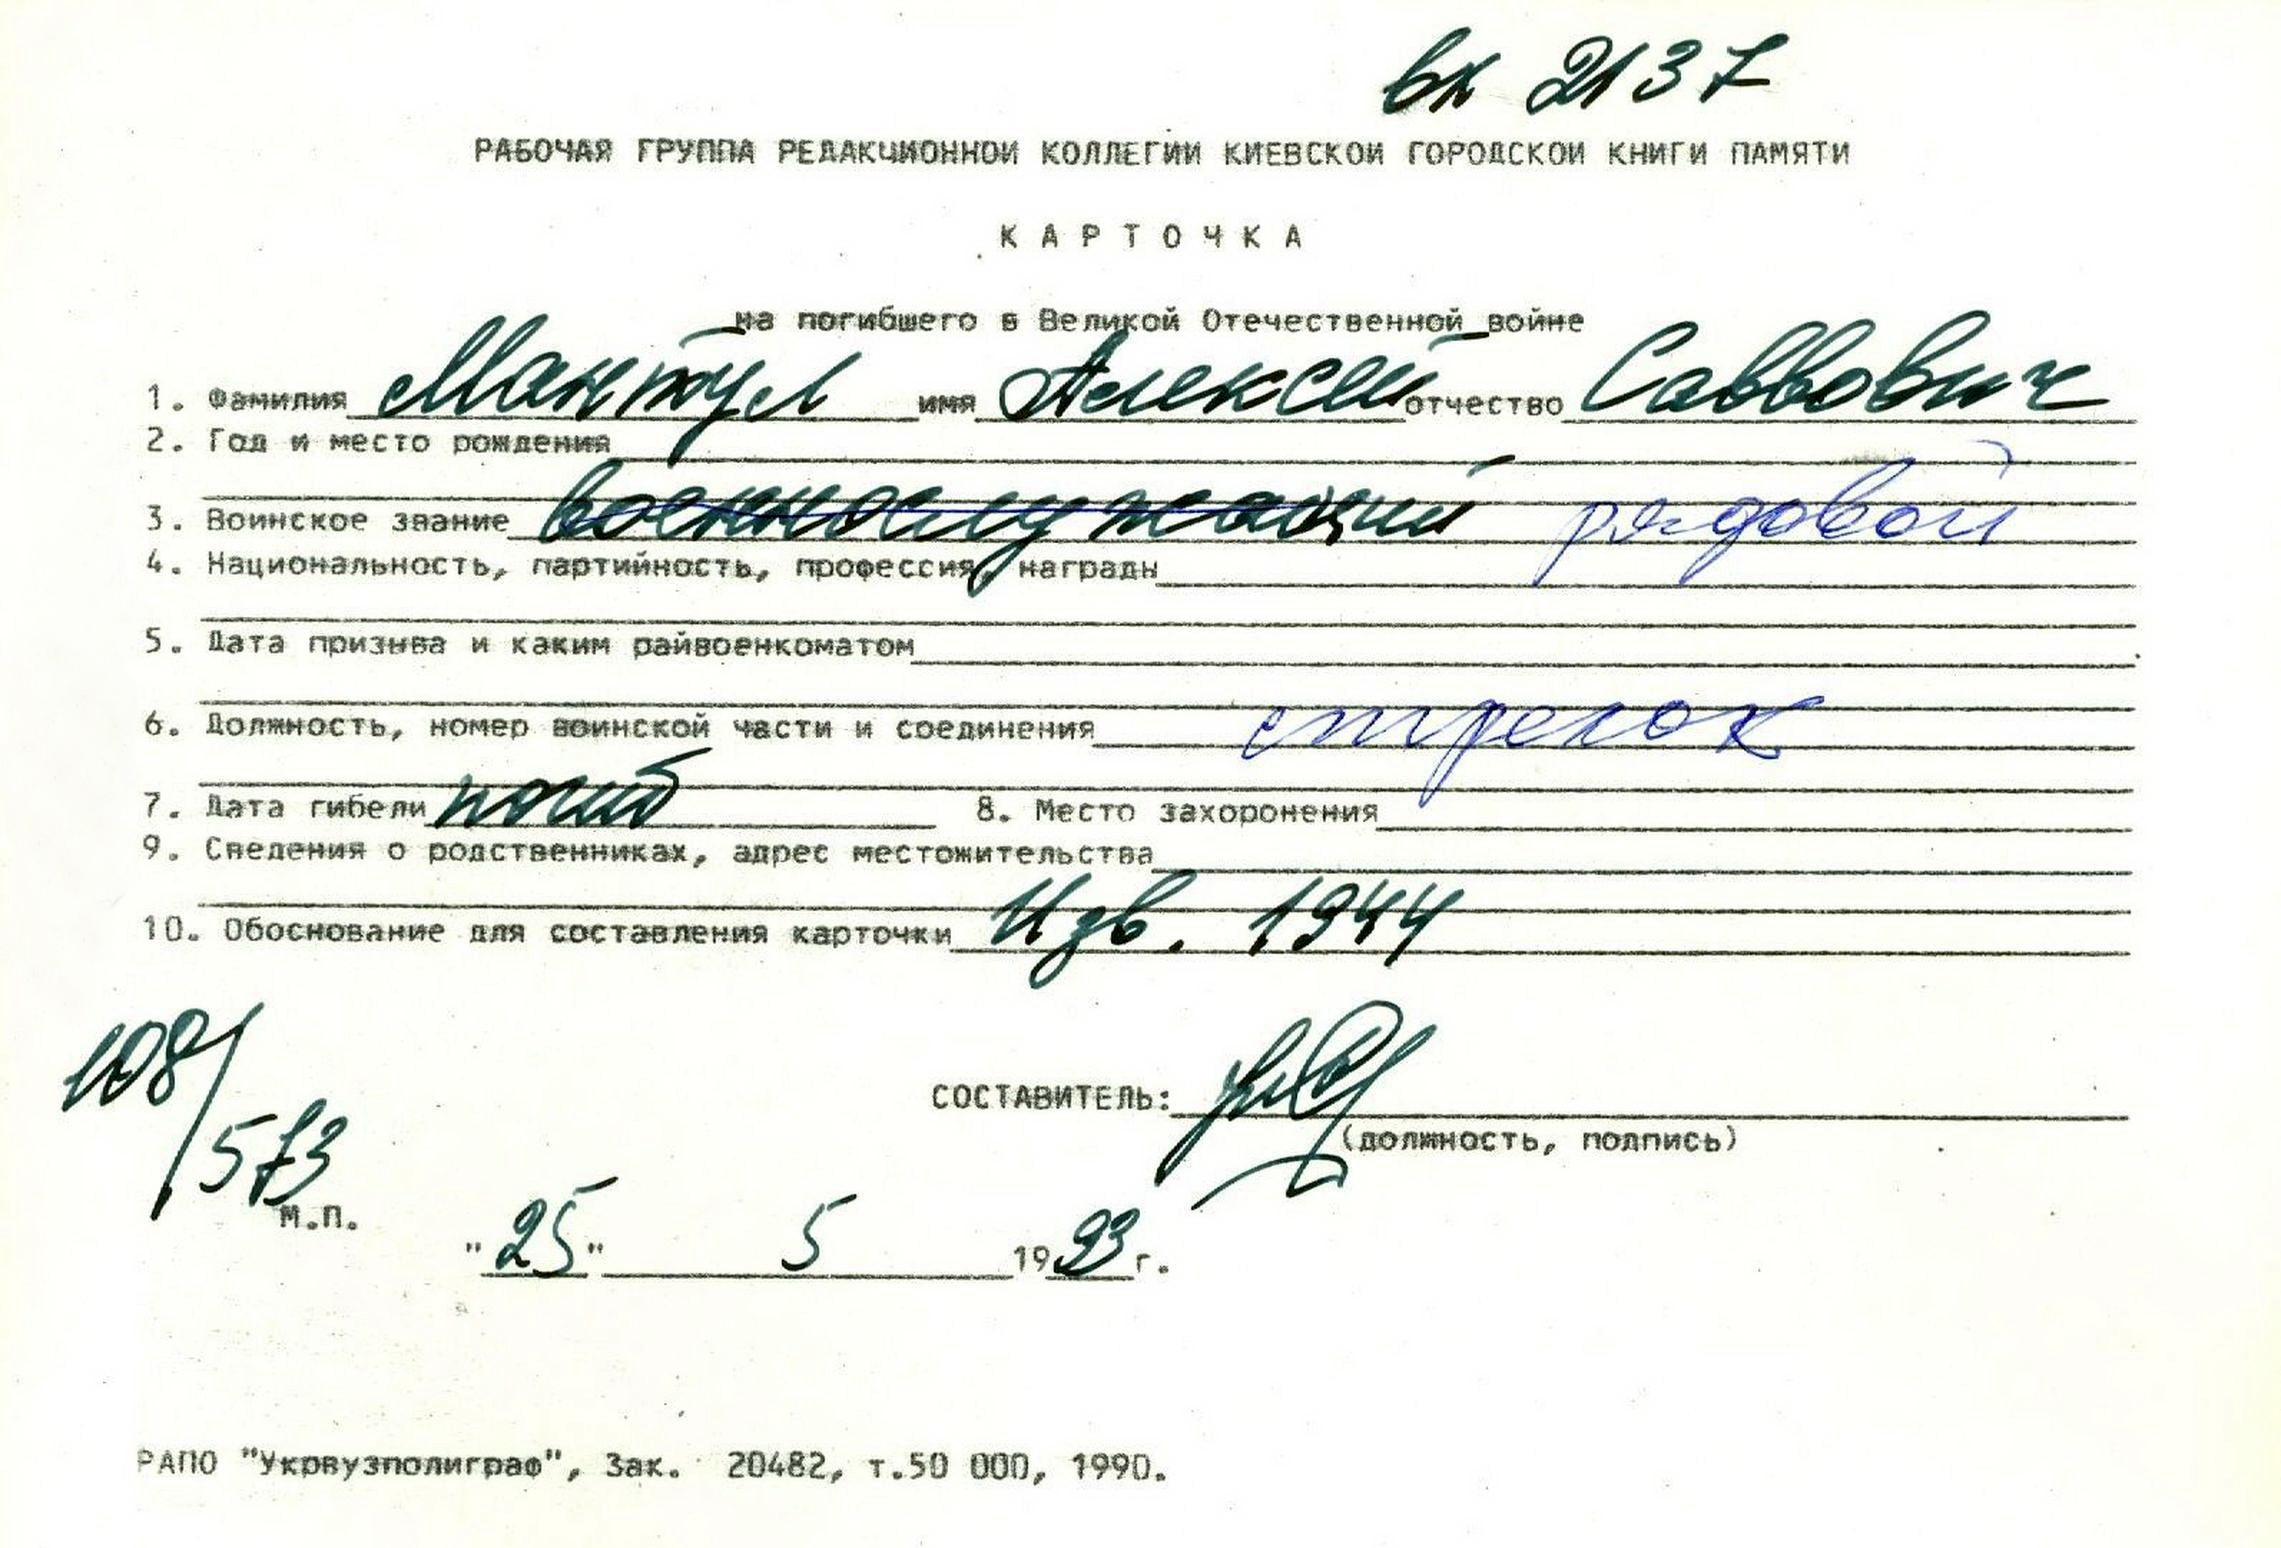 вх 2137
РАБОЧАЯ ГРУППА РЕДАКЦИОННОЙ КОЛЛЕГИИ КИЕВСКОЙ ГОРОДСКОЙ КНИГИ ПАМЯТИ
КАРТОЧКА
на погибшего в Великой Отечественной войне
1. Фамилия Мантул имя Алексей отчество Саввович
2. Год и место рождения
3. Воинское звание военнослужащий рядовой
4. Национальность, партийность, профессия, награды
5. Дата призыва и каким райвоенкоматом
6. Должность, номер воинской части и соединения стрелок
7. Дата гибели погиб 8. Место захоронения
9. Сведения о родственниках, адрес местожительства
10. Обоснование для составления карточки Изв. 1944
108/573
СОСТАВИТЕЛЬ:
(должность, подпись)
М.П.
"25" 5 1993 г.
РАПО "Укрвузполиграф", Зак. 20482, т.50 000, 1990.